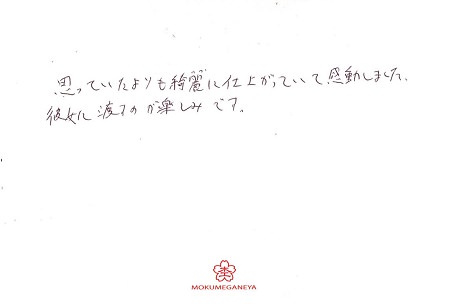 思っていたよりも綺麗に仕上がっていて感動しました。
彼女に渡すのが楽しみです。
MOKUMEGANEYA